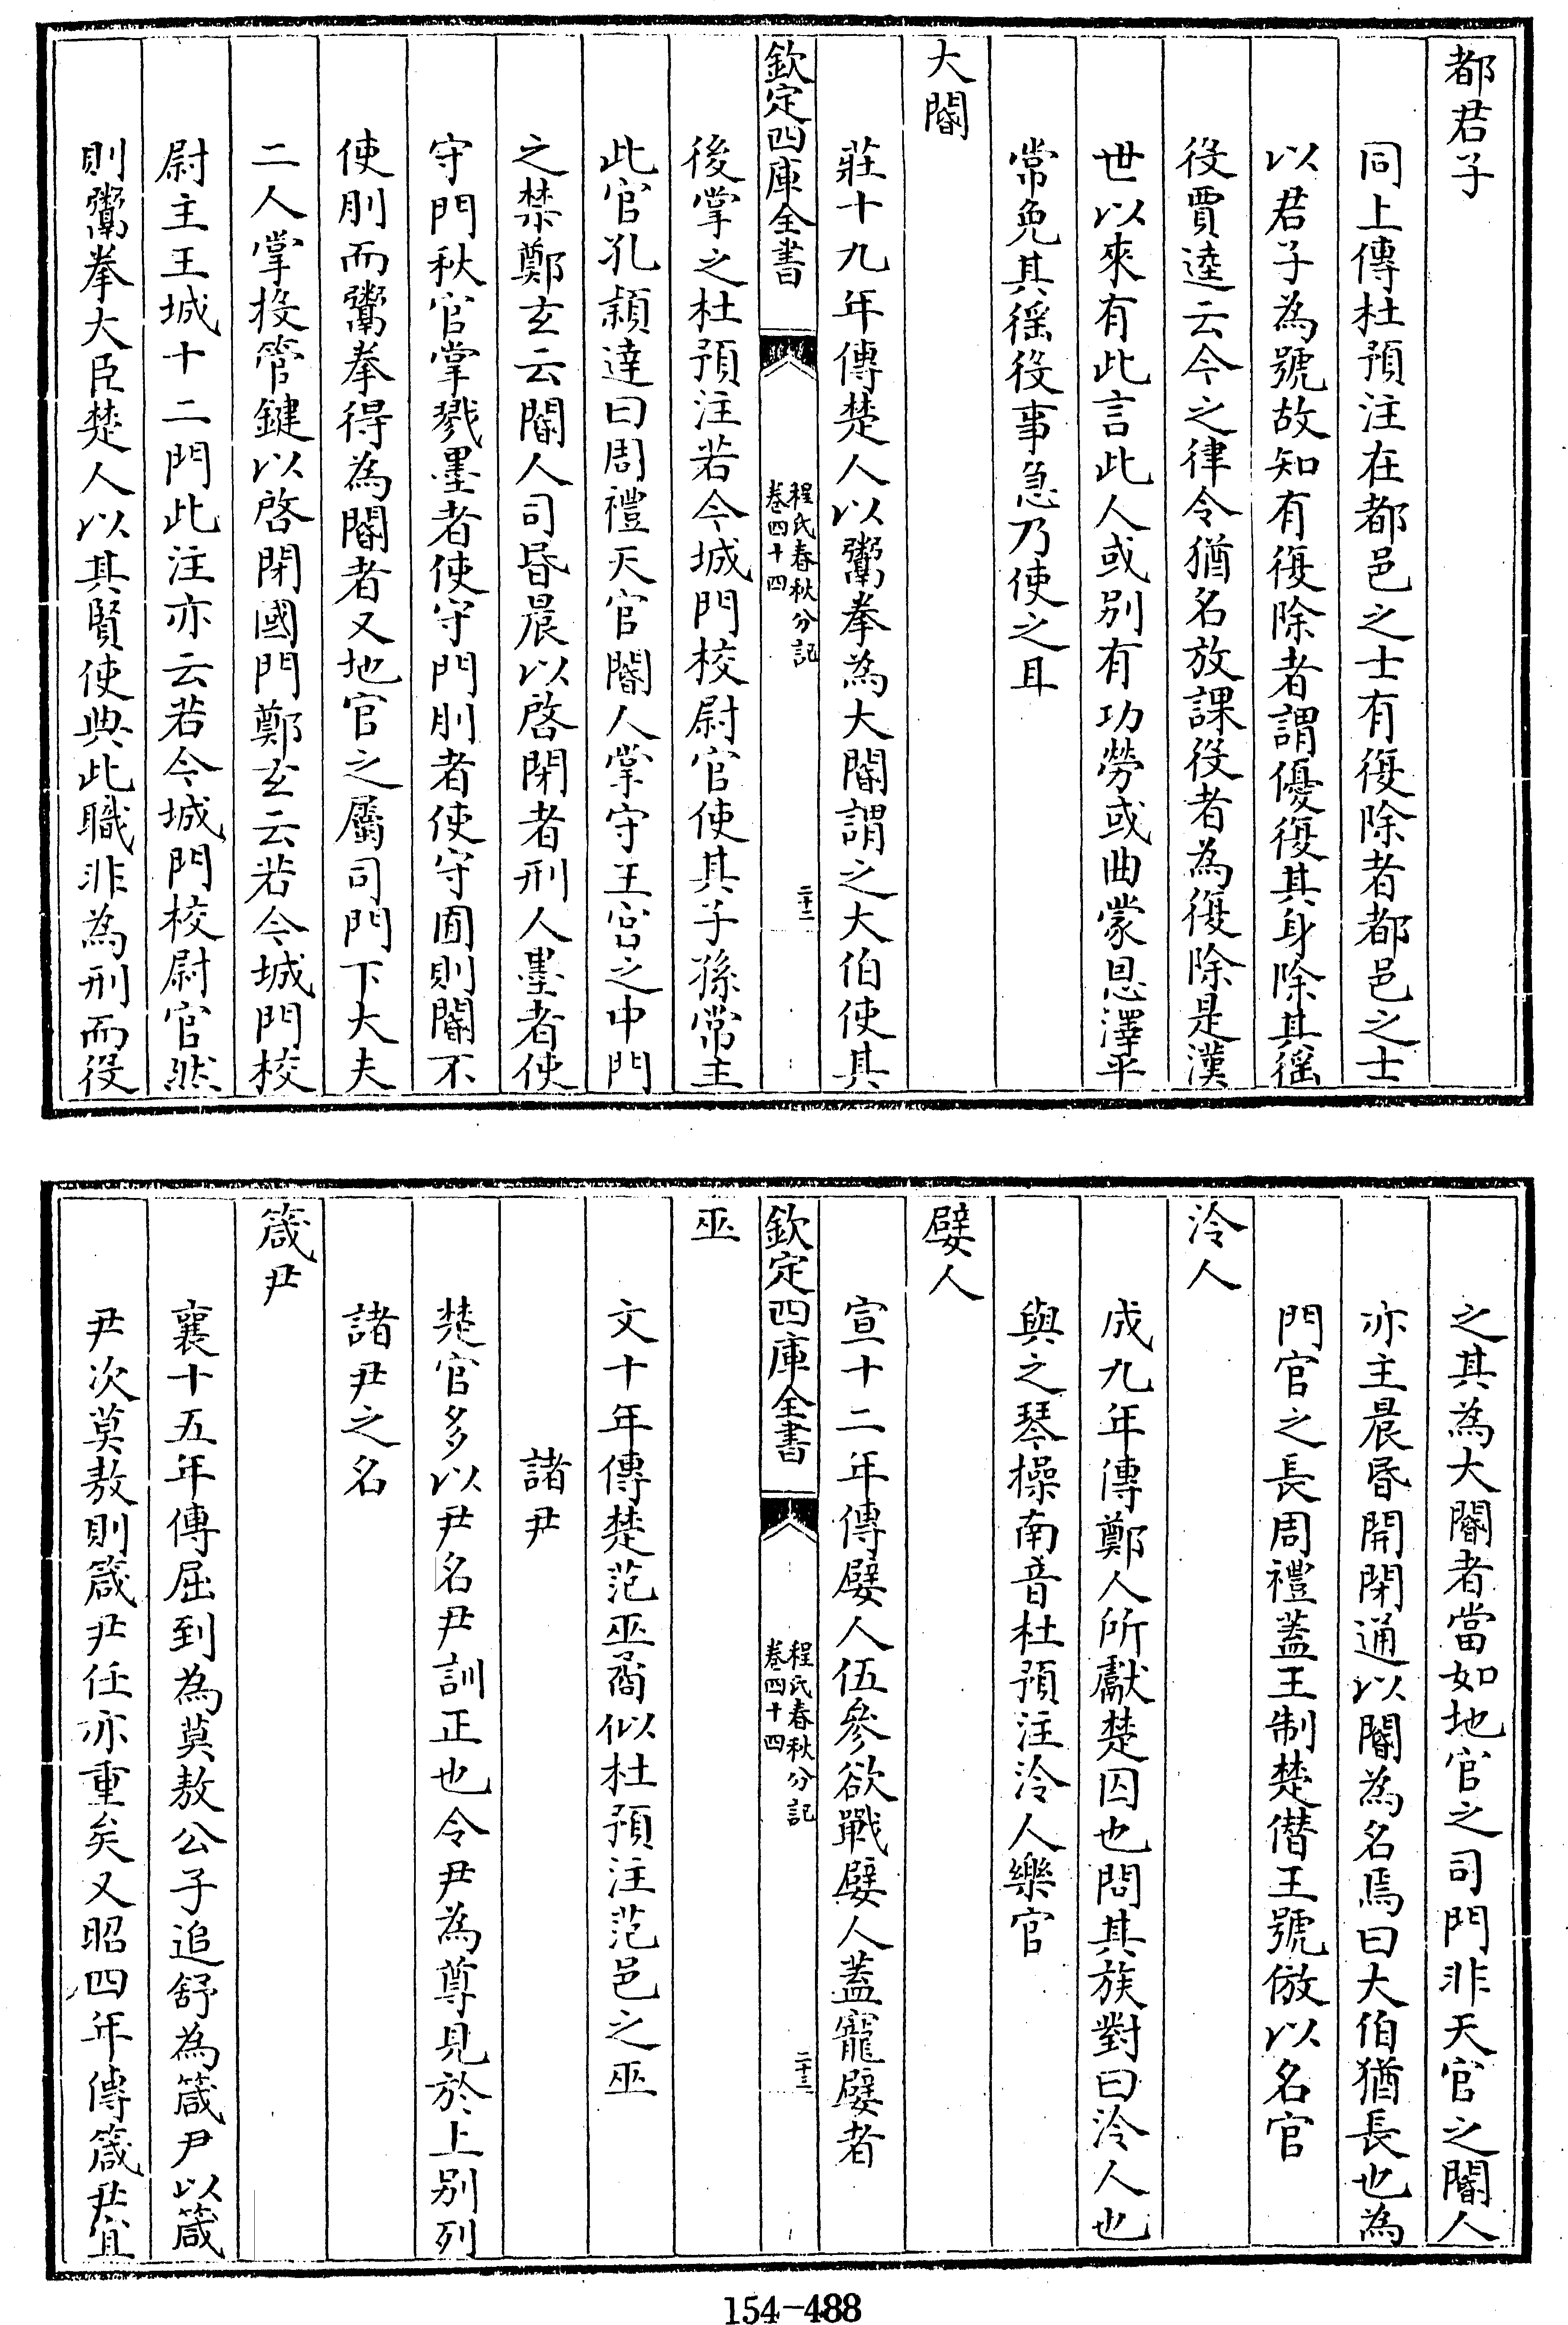 都君子
同上傳杜預注在都邑之士有復除者都邑之士
以君子為號故知有復除者謂優復其身除其徭
役賈逵云今之律令猶名放課役者為復除是漢
世以來有此言此人或別有功勞或曲蒙恩澤平
常免其徭役事急乃使之耳
大閽
莊十九年傳楚人以鬻拳為大閽謂之大伯使其
欽定四庫全書
程氏春秋分記
卷四十四
二十二
後掌之杜預注若今城門校尉官使其子孫常主
此官孔穎達曰周禮天官閽人掌守王宮之中門
之禁鄭玄云閽人司昏晨以啓閉者刑人墨者使
守門秋官掌戮墨者使守門刖者使守囿則閽不
使刖而鬻拳得為閽者又地官之屬司門下大夫
二人掌授管鍵以啓閉國門鄭玄云若今城門校
尉主王城十二門此注亦云若今城門校尉官然
則鬻拳大臣楚人以其賢使典此職非為刑而役
之其為大閽者當如地官之司門非天官之閽人
亦主晨昏開閉通以閽為名焉曰大伯猶長也為
門官之長周禮蓋王制楚僭王號倣以名官
泠人
成九年傳鄭人所獻楚囚也問其族對曰泠人也
與之琴操南音杜預注泠人樂官
嬖人
宣十二年傳嬖人伍參欲戰嬖人蓋寵嬖者
欽定四庫全書
程氏春秋分記
卷四十四
二十三
巫
文十年傳楚范巫矞似杜預注范邑之巫
諸尹
楚官多以尹名尹訓正也令尹為尊見於上別列
諸尹之名
箴尹
襄十五年傳屈到為莫敖公子追舒為箴尹以箴
尹次莫敖則箴尹任亦重矣又昭四年傳箴尹宜
154-488